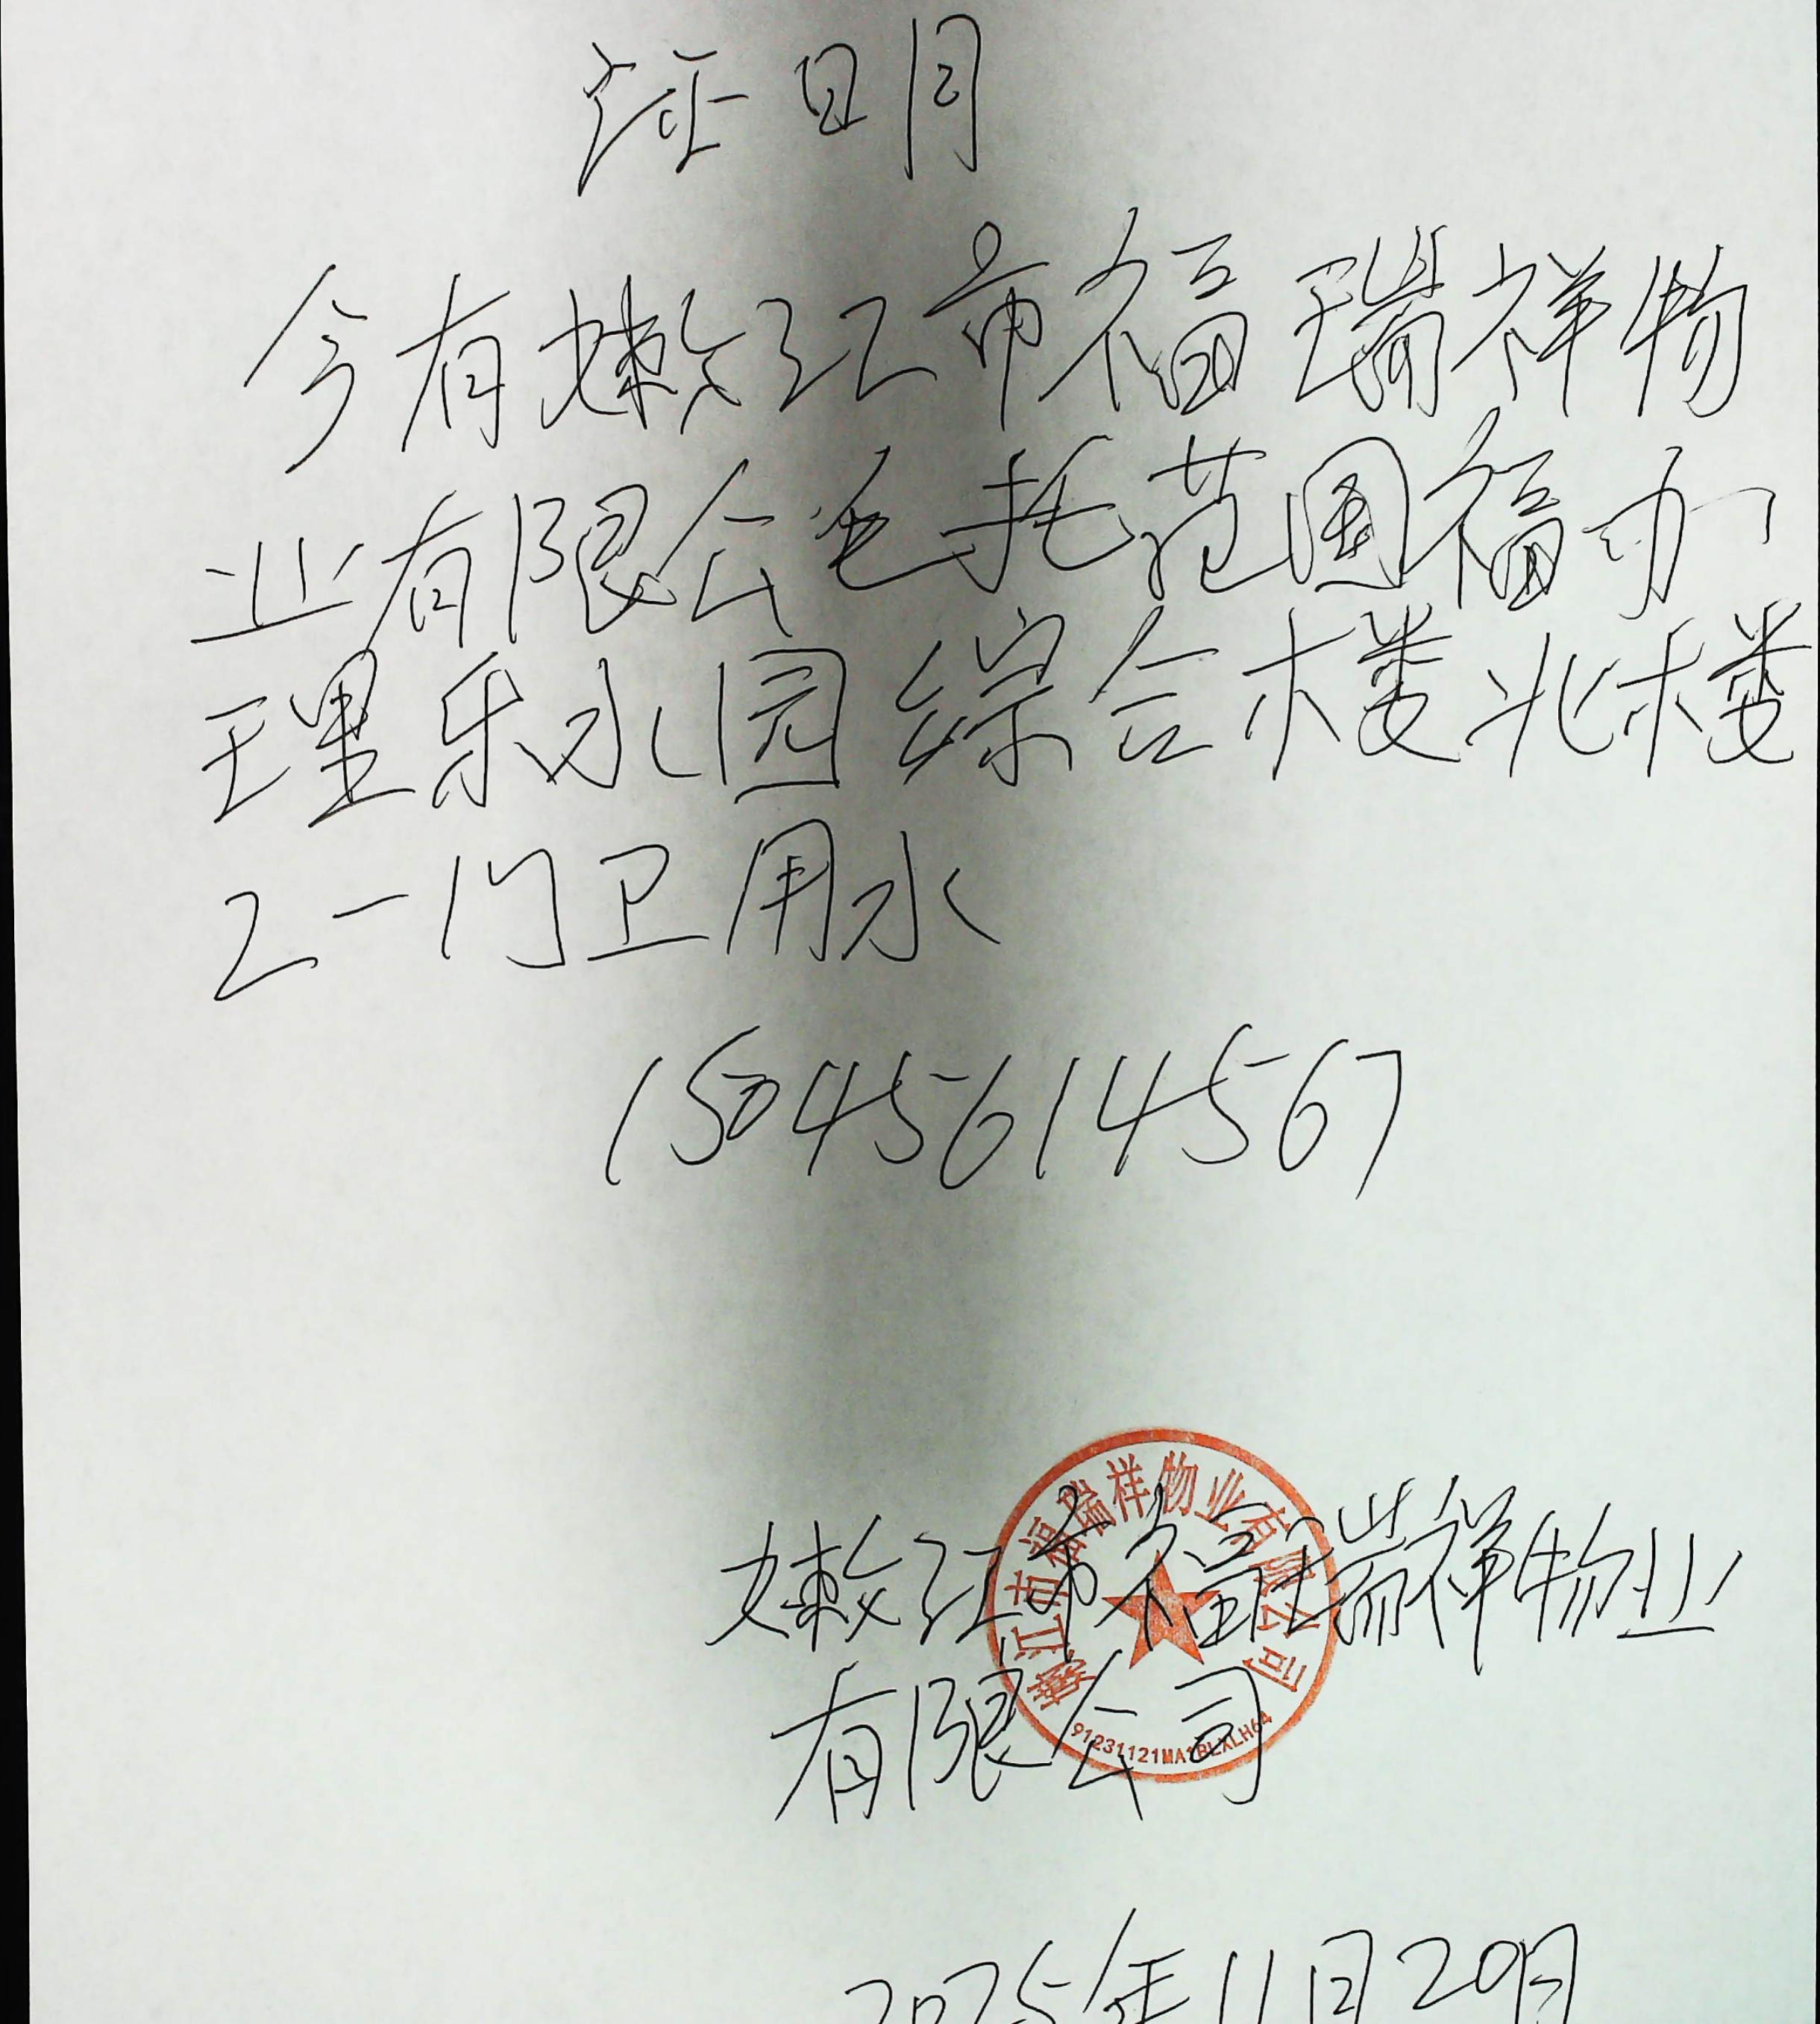 证明
今有嫩江市福瑞祥物
业有限公包托范围福办
理乐水园综合楼北楼
2-1门卫用水
15045614567
嫩江市福瑞祥物业有限公司
91231121MA1BLXLH64
嫩江市福瑞祥物业
有限公司
2025年11月20日